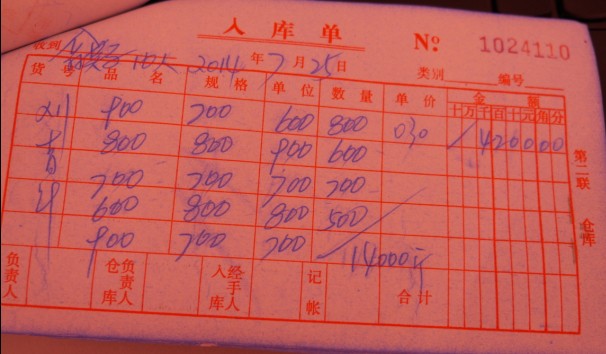 入库单
№ 1024110
收到 2014年7月25日 类别 编号
货号 品名 规格 单位 数量 单价 金额
十万千百十元角分
900 700 600 800 030 420000
800 800 900 600
700 700 700 700
600 800 800 500
900 700 700 14000斤
第二联 仓库
负责人 仓库负责人 入库经手人 记帐 合计